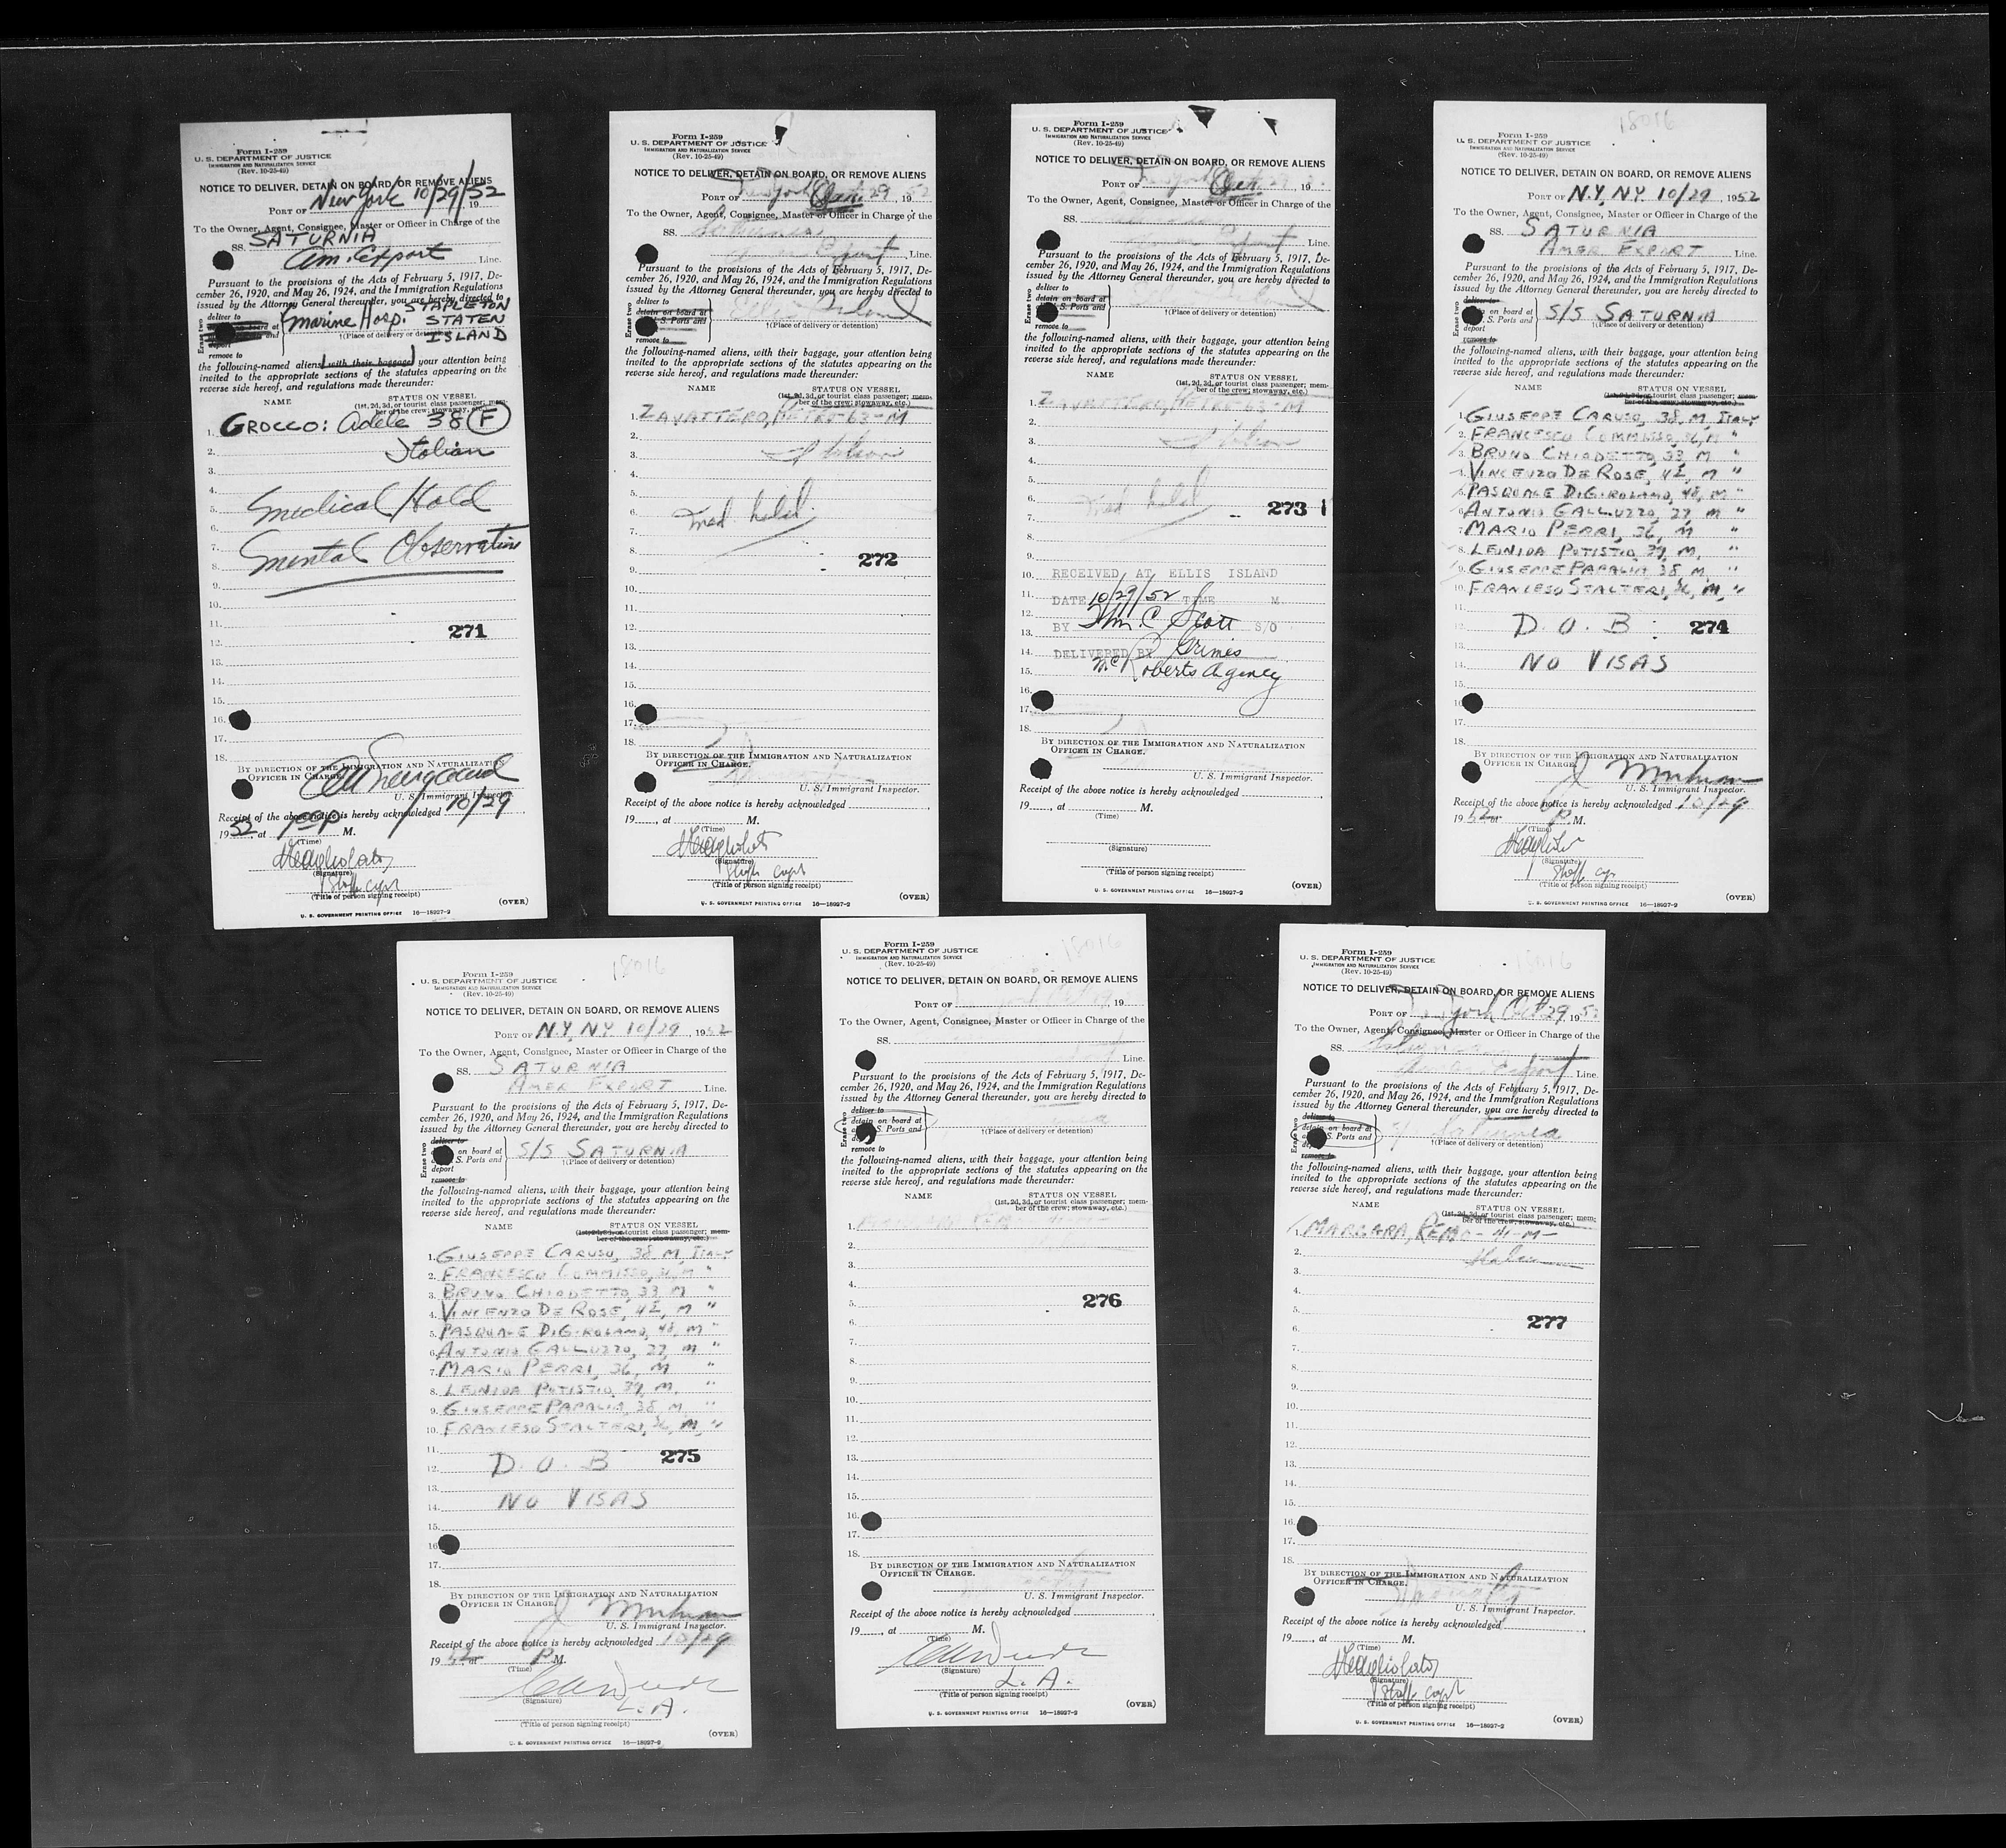 Form I-259
U. S. DEPARTMENT OF JUSTICE
IMMIGRATION AND NATURALIZATION SERVICE
(Rev. 10-25-49)
NOTICE TO DELIVER, DETAIN ON BOARD, OR REMOVE ALIENS
PORT OF New York 10/29/52, 19
To the Owner, Agent, Consignee, Master or Officer in Charge of the
SS. SATURNIA
Am. Export Line.
Pursuant to the provisions of the Acts of February 5, 1917, De-
cember 26, 1920, and May 26, 1924, and the Immigration Regulations
issued by the Attorney General thereunder, you are hereby directed to
Erase two
deliver to
board at
and
deport
remove to
Marine Hosp. STAPLETON
STATEN
ISLAND
†(Place of delivery or detention)
the following-named aliens, with their baggage, your attention being
invited to the appropriate sections of the statutes appearing on the
reverse side hereof, and regulations made thereunder:
NAME STATUS ON VESSEL
(1st, 2d, 3d, or tourist class passenger; mem-
ber of the crew; stowaway, etc.)
1. GROCCO: Adele 38 (F)
2. Italian
3.
4.
5. Medical Hold
6.
7. Mental Observation
8.
9.
10.
11.
12. 271
13.
14.
15.
16.
17.
18.
BY DIRECTION OF THE IMMIGRATION AND NATURALIZATION
OFFICER IN CHARGE.
U. S. Immigrant Inspector.
Receipt of the above notice is hereby acknowledged 10/29
1952, at M.
(Time)
(Signature)
Staff Capt
(Title of person signing receipt)
(OVER)
U. S. GOVERNMENT PRINTING OFFICE 16—18927-2
Form I-259
U. S. DEPARTMENT OF JUSTICE
IMMIGRATION AND NATURALIZATION SERVICE
(Rev. 10-25-49)
NOTICE TO DELIVER, DETAIN ON BOARD, OR REMOVE ALIENS
PORT OF New York Oct. 29, 1952
To the Owner, Agent, Consignee, Master or Officer in Charge of the
SS. Saturnia
Export Line.
Pursuant to the provisions of the Acts of February 5, 1917, De-
cember 26, 1920, and May 26, 1924, and the Immigration Regulations
issued by the Attorney General thereunder, you are hereby directed to
Erase two
deliver to
detain on board at
S. Ports and
remove to
Ellis Island
†(Place of delivery or detention)
the following-named aliens, with their baggage, your attention being
invited to the appropriate sections of the statutes appearing on the
reverse side hereof, and regulations made thereunder:
NAME STATUS ON VESSEL
(1st, 2d, 3d, or tourist class passenger; mem-
ber of the crew; stowaway, etc.)
1. ZAVATTERO, PETRE-63-M
2.
3. Italian
4.
5.
6. Med. held.
7.
8.
9. 272
10.
11.
12.
13.
14.
15.
16.
17.
18.
BY DIRECTION OF THE IMMIGRATION AND NATURALIZATION
OFFICER IN CHARGE.
U. S. Immigrant Inspector.
Receipt of the above notice is hereby acknowledged
19, at M.
(Time)
(Signature)
Staff Capt
(Title of person signing receipt)
(OVER)
U. S. GOVERNMENT PRINTING OFFICE 16—18927-2
Form I-259
U. S. DEPARTMENT OF JUSTICE
IMMIGRATION AND NATURALIZATION SERVICE
(Rev. 10-25-49)
NOTICE TO DELIVER, DETAIN ON BOARD, OR REMOVE ALIENS
PORT OF New York Oct. 29, 19
To the Owner, Agent, Consignee, Master or Officer in Charge of the
SS.
Export Line.
Pursuant to the provisions of the Acts of February 5, 1917, De-
cember 26, 1920, and May 26, 1924, and the Immigration Regulations
issued by the Attorney General thereunder, you are hereby directed to
Erase two
deliver to
detain on board at
S. Ports and
remove to
Island
†(Place of delivery or detention)
the following-named aliens, with their baggage, your attention being
invited to the appropriate sections of the statutes appearing on the
reverse side hereof, and regulations made thereunder:
NAME STATUS ON VESSEL
(1st, 2d, 3d, or tourist class passenger; mem-
ber of the crew; stowaway, etc.)
1. ZAVATTERO, PETRE-63-M
2.
3. Italian
4.
5.
6. Med held 273
7.
8.
9.
10. RECEIVED AT ELLIS ISLAND
11. DATE 10/29/52 TIME M
12. BY Wm. C. Scott S/O
13.
14. DELIVERED BY Grimes
15. McRoberts Agency
16.
17.
18.
BY DIRECTION OF THE IMMIGRATION AND NATURALIZATION
OFFICER IN CHARGE.
U. S. Immigrant Inspector.
Receipt of the above notice is hereby acknowledged
19, at M.
(Time)
(Signature)
(Title of person signing receipt)
(OVER)
U. S. GOVERNMENT PRINTING OFFICE 16—18927-2
18016
Form I-259
U. S. DEPARTMENT OF JUSTICE
IMMIGRATION AND NATURALIZATION SERVICE
(Rev. 10-25-49)
NOTICE TO DELIVER, DETAIN ON BOARD, OR REMOVE ALIENS
PORT OF N.Y, N.Y. 10/29, 1952
To the Owner, Agent, Consignee, Master or Officer in Charge of the
SS. SATURNIA
AMER EXPORT Line.
Pursuant to the provisions of the Acts of February 5, 1917, De-
cember 26, 1920, and May 26, 1924, and the Immigration Regulations
issued by the Attorney General thereunder, you are hereby directed to
Erase two
deliver to
on board at
S. Ports and
deport
remove to
S/S SATURNIA
†(Place of delivery or detention)
the following-named aliens, with their baggage, your attention being
invited to the appropriate sections of the statutes appearing on the
reverse side hereof, and regulations made thereunder:
NAME STATUS ON VESSEL
(1st, 2d, 3d, or tourist class passenger; mem-
ber of the crew; stowaway, etc.)
1. GIUSEPPE CARUSO, 38, M, ITALY
2. FRANCESCO COMMISSO, 36, M "
3. BRUNO CHIODETTO, 33 M "
4. VINCENZO DE ROSE, 42, M "
5. PASQUALE DIGIROLAMO, 48, M "
6. ANTONIO GALLUZZO, 27, M "
7. MARIO PERRI, 36, M "
8. LEONIDA POTISTIO, 39, M. "
9. GIUSEPPE PAPALIA 38 M "
10. FRANCESO STALTERI, 36, M, "
11.
12. D. O. B 274
13.
14. NO VISAS
15.
16.
17.
18.
BY DIRECTION OF THE IMMIGRATION AND NATURALIZATION
OFFICER IN CHARGE.
U. S. Immigrant Inspector.
Receipt of the above notice is hereby acknowledged 10/29
1952, at P.M.
(Time)
(Signature)
Staff Cap
(Title of person signing receipt)
(OVER)
U. S. GOVERNMENT PRINTING OFFICE 16—18927-2
18016
Form I-259
U. S. DEPARTMENT OF JUSTICE
IMMIGRATION AND NATURALIZATION SERVICE
(Rev. 10-25-49)
NOTICE TO DELIVER, DETAIN ON BOARD, OR REMOVE ALIENS
PORT OF N.Y, N.Y 10/29, 1952
To the Owner, Agent, Consignee, Master or Officer in Charge of the
SS. SATURNIA
AMER EXPORT Line.
Pursuant to the provisions of the Acts of February 5, 1917, De-
cember 26, 1920, and May 26, 1924, and the Immigration Regulations
issued by the Attorney General thereunder, you are hereby directed to
Erase two
deliver to
on board at
S. Ports and
deport
remove to
S/S SATURNIA
†(Place of delivery or detention)
the following-named aliens, with their baggage, your attention being
invited to the appropriate sections of the statutes appearing on the
reverse side hereof, and regulations made thereunder:
NAME STATUS ON VESSEL
(1st, 2d, 3d, or tourist class passenger; mem-
ber of the crew; stowaway, etc.)
1. GIUSEPPE CARUSO, 38 M, ITALY
2. FRANCESCO COMMISSO, 36, M "
3. BRUNO CHIODETTO, 33 M "
4. VINCENZO DE ROSE, 42, M "
5. PASQUALE DIGIROLAMO, 48, M "
6. ANTONIO GALLUZZO, 27, M "
7. MARIO PERRI, 36, M "
8. LEONIDA POTISTIO, 39, M. "
9. GIUSEPPE PAPALIA, 38 M "
10. FRANCESO STALTERI, 36, M, "
11.
12. D. O. B 275
13.
14. NO VISAS
15.
16.
17.
18.
BY DIRECTION OF THE IMMIGRATION AND NATURALIZATION
OFFICER IN CHARGE.
U. S. Immigrant Inspector.
Receipt of the above notice is hereby acknowledged 10/29
1952, at P.M.
(Time)
(Signature)
L.A.
(Title of person signing receipt)
(OVER)
U. S. GOVERNMENT PRINTING OFFICE 16—18927-2
18016
Form I-259
U. S. DEPARTMENT OF JUSTICE
IMMIGRATION AND NATURALIZATION SERVICE
(Rev. 10-25-49)
NOTICE TO DELIVER, DETAIN ON BOARD, OR REMOVE ALIENS
PORT OF , 19
To the Owner, Agent, Consignee, Master or Officer in Charge of the
SS.
Line.
Pursuant to the provisions of the Acts of February 5, 1917, De-
cember 26, 1920, and May 26, 1924, and the Immigration Regulations
issued by the Attorney General thereunder, you are hereby directed to
Erase two
deliver to
detain on board at
S. Ports and
remove to
†(Place of delivery or detention)
the following-named aliens, with their baggage, your attention being
invited to the appropriate sections of the statutes appearing on the
reverse side hereof, and regulations made thereunder:
NAME STATUS ON VESSEL
(1st, 2d, 3d, or tourist class passenger; mem-
ber of the crew; stowaway, etc.)
1.
2.
3.
4.
5. 276
6.
7.
8.
9.
10.
11.
12.
13.
14.
15.
16.
17.
18.
BY DIRECTION OF THE IMMIGRATION AND NATURALIZATION
OFFICER IN CHARGE.
U. S. Immigrant Inspector.
Receipt of the above notice is hereby acknowledged
19, at M.
(Time)
(Signature)
L.A.
(Title of person signing receipt)
(OVER)
U. S. GOVERNMENT PRINTING OFFICE 16—18927-2
18016
Form I-259
U. S. DEPARTMENT OF JUSTICE
IMMIGRATION AND NATURALIZATION SERVICE
(Rev. 10-25-49)
NOTICE TO DELIVER, DETAIN ON BOARD, OR REMOVE ALIENS
PORT OF York Oct 29 1952
To the Owner, Agent, Consignee, Master or Officer in Charge of the
SS. Saturnia
American Export Line.
Pursuant to the provisions of the Acts of February 5, 1917, De-
cember 26, 1920, and May 26, 1924, and the Immigration Regulations
issued by the Attorney General thereunder, you are hereby directed to
Erase two
deliver to
detain on board at
S. Ports and
remove to
Saturnia
†(Place of delivery or detention)
the following-named aliens, with their baggage, your attention being
invited to the appropriate sections of the statutes appearing on the
reverse side hereof, and regulations made thereunder:
NAME STATUS ON VESSEL
(1st, 2d, 3d, or tourist class passenger; mem-
ber of the crew; stowaway, etc.)
1. MARGARA, REMO-41-M-
2. Italian
3.
4.
5. 277
6.
7.
8.
9.
10.
11.
12.
13.
14.
15.
16.
17.
18.
BY DIRECTION OF THE IMMIGRATION AND NATURALIZATION
OFFICER IN CHARGE.
U. S. Immigrant Inspector.
Receipt of the above notice is hereby acknowledged
19, at M.
(Time)
(Signature)
Staff Capt
(Title of person signing receipt)
(OVER)
U. S. GOVERNMENT PRINTING OFFICE 16—18927-2